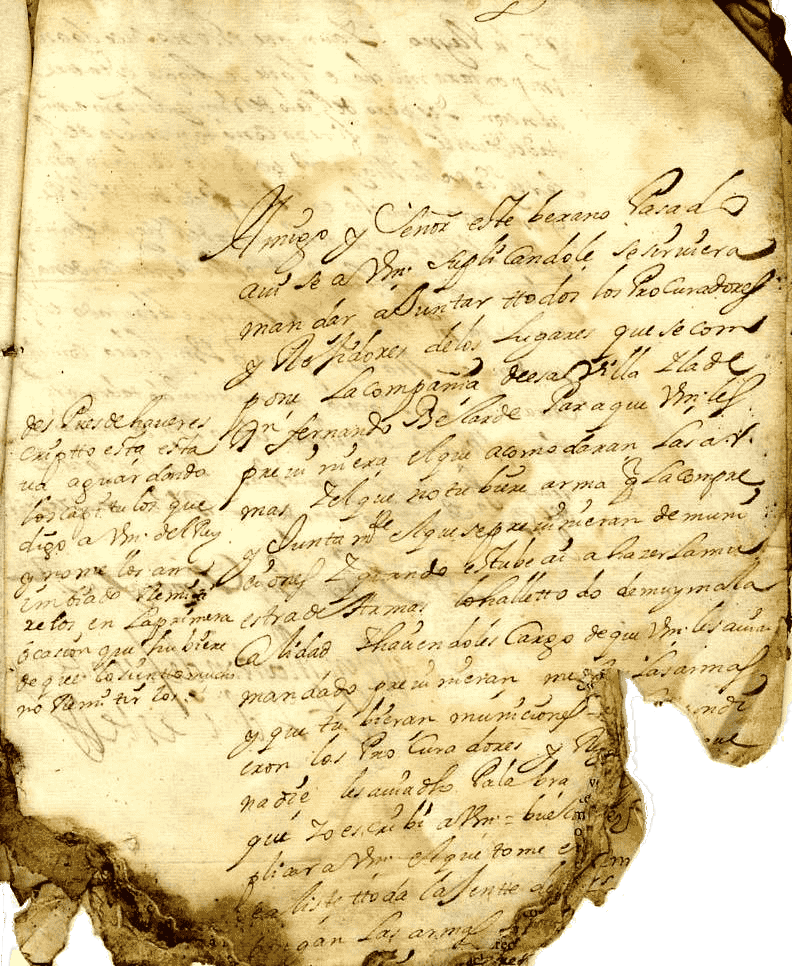 Amigo y Señor este berano Pasado
auise a Vm. Suplicandole se siruiera
mandar a Juntar ttodos los Procuradores
y Rexidores de los Lugares que se com
pone La Compañia de esa Villa
Dn. fernando Belarde Para que Vm. les
preuiniera el que acomodaran Las ar
mas y el que no tubiere arma q La compre
y Junta mte el que se preuinieran de muni
ciones y quando estube ai a hazer La mu
estra de Armas lo halle ttodo de muy mala
Calidad y hauiendoles Cargo de que Vm. les auia
mandado preuinieran Las armas
y que tubieran municiones
eron los Procuradores y
nadie les auia dho Palabra
que yo escribi a Vm. =
plicar a Vm. el que tome
ealiste ttoda la Jentte de
tengan Las armas
des Pues de hauer es
criptto esta esta
ua aguardando
los capitulos que
digo a Vm. del Rey
y no me los an
imbiado Remiti
re los en La primera
ocasion que hubiere
de que lo siento mucho
no Remitir los